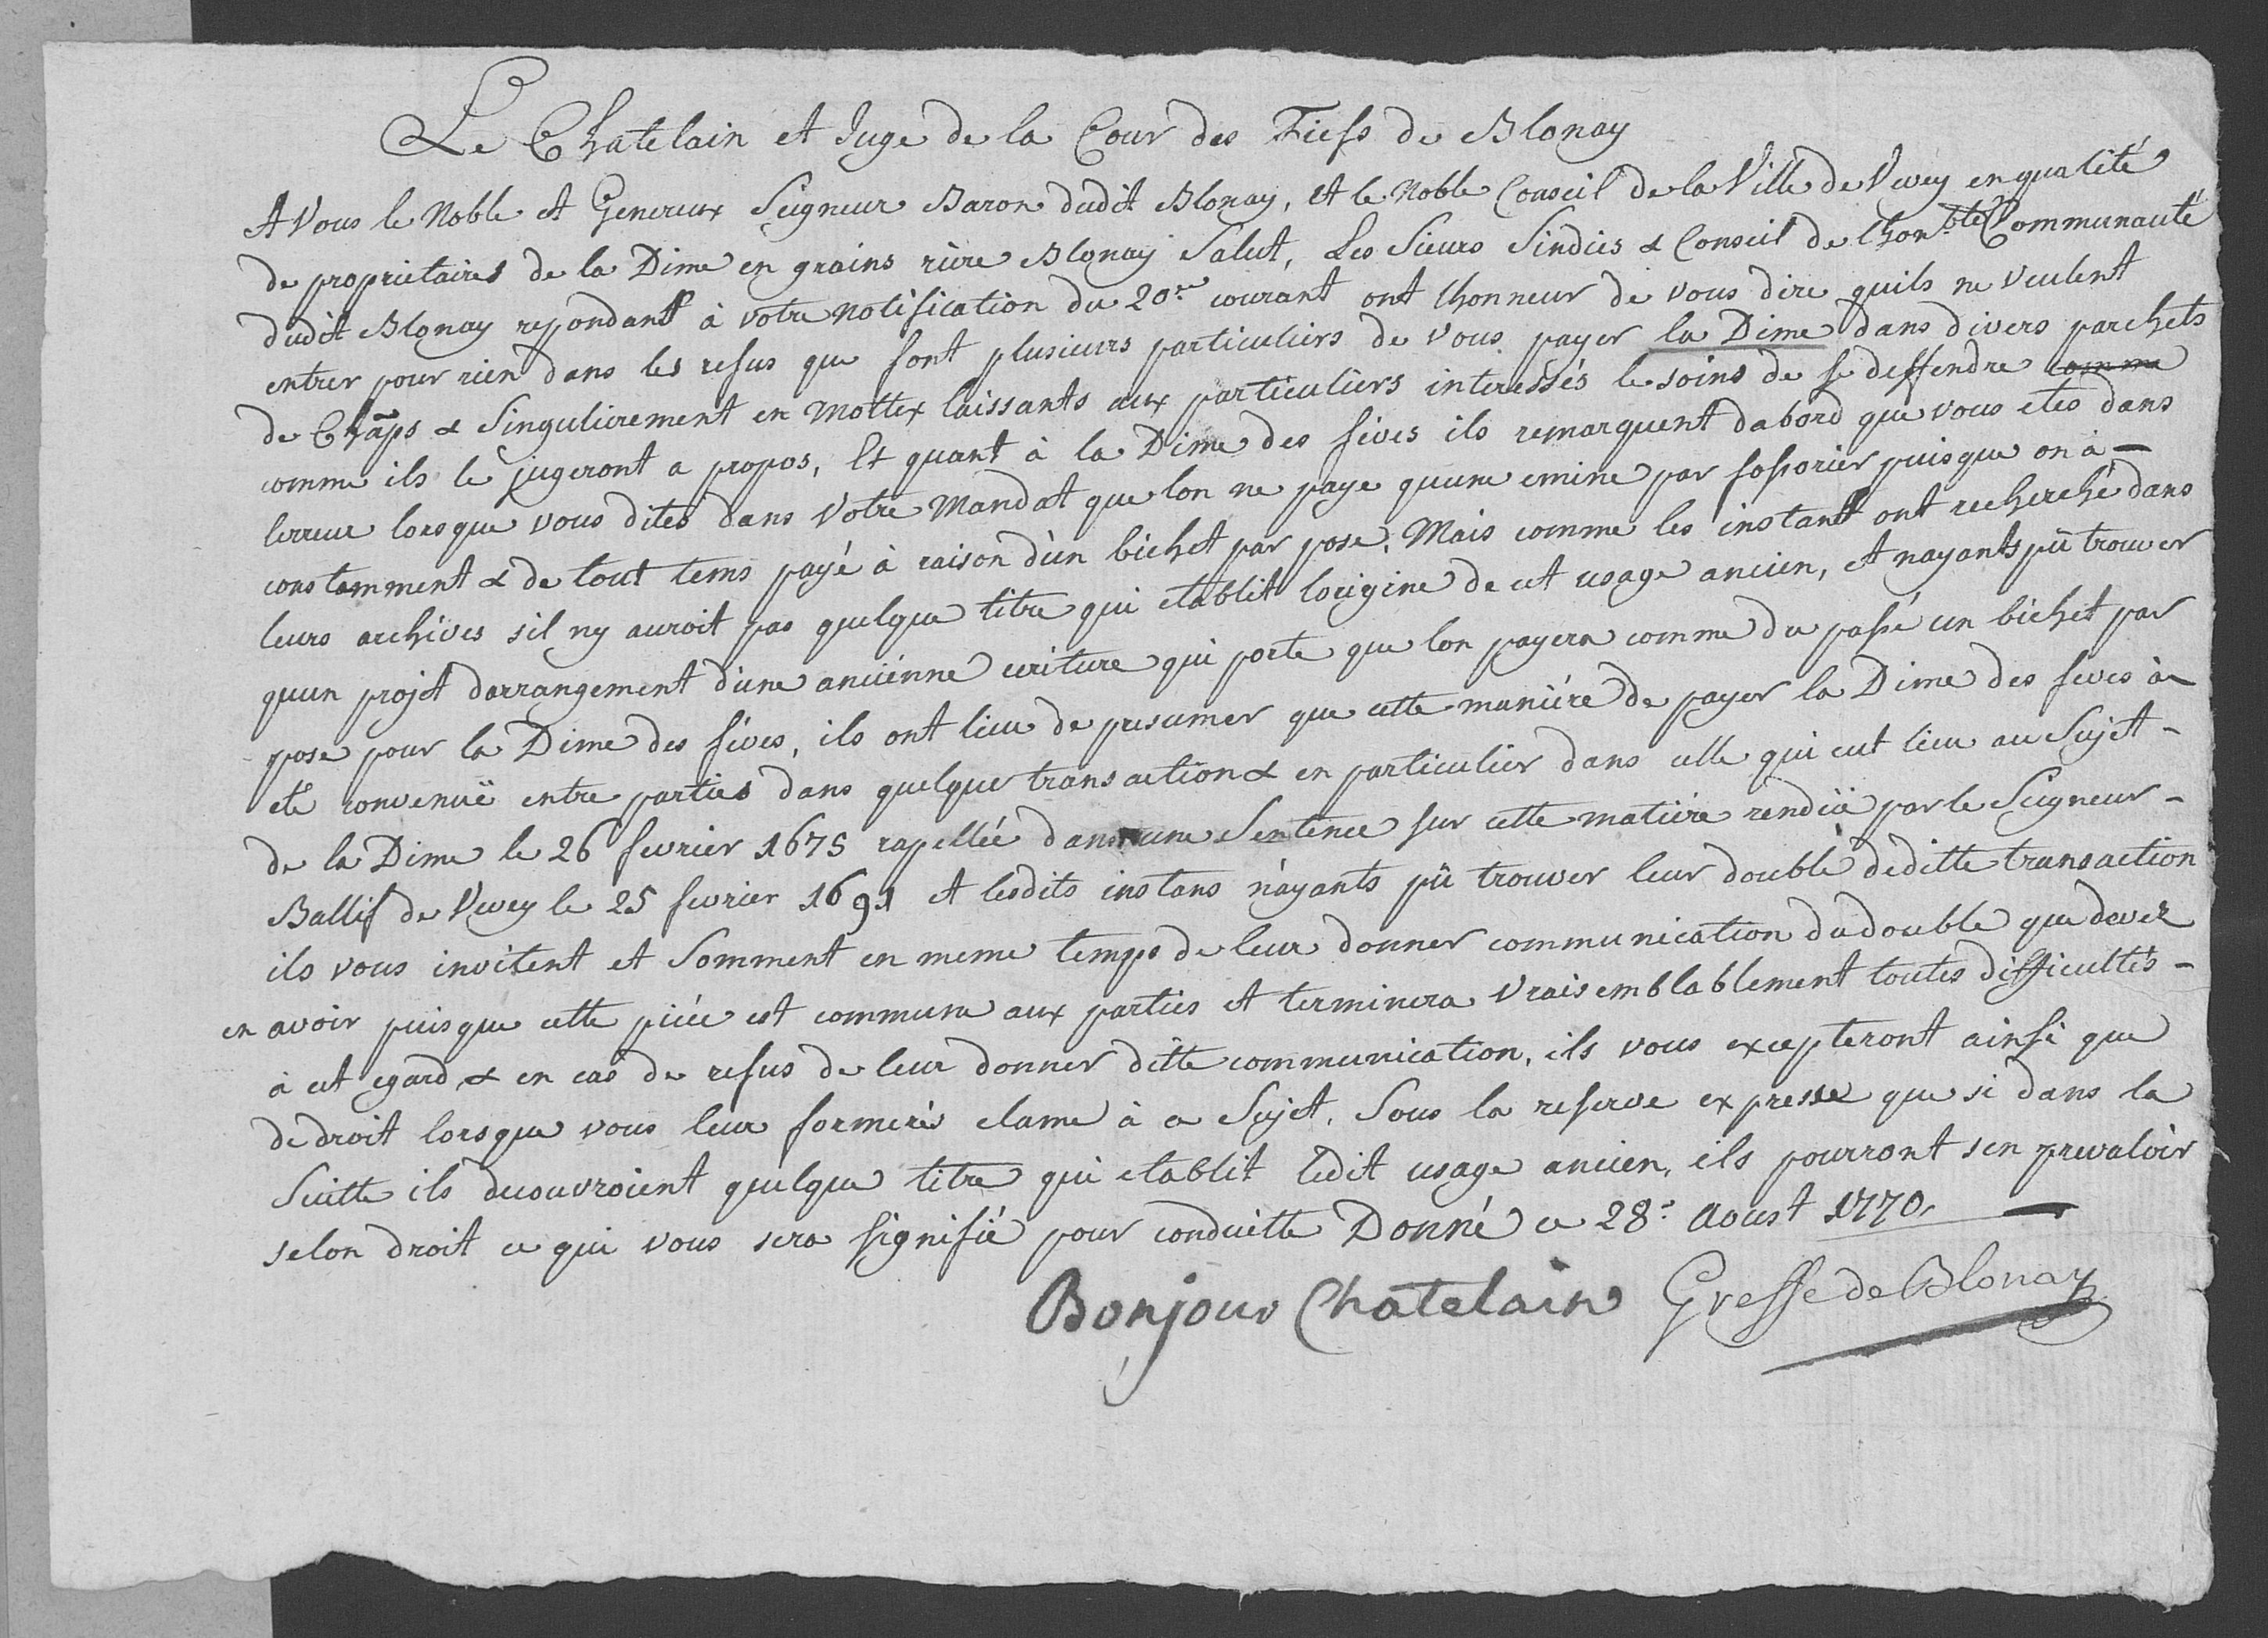 Le Chatelain et Juge de la Cour des Fiefs de Blonay
A Vous le Noble et Genereux Seigneur Baron dudit Blonay, et le Noble Conseil de la Ville de Vevey en qualité
de proprietaires de la Dime en grains riére Blonay Salut, Les Sieurs Sindics & Conseil de lhon.ble Communauté
dudit Blonay repondant à votre notification du 20.e courant ont lhonneur de vous dire quils ne veulent
entrer pour rien dans les refus que font plusieurs particuliers de vous payer la Dime dans divers parchets
de Chãps & Singulierement en Mottex laissants aux particuliers interessés le soins de se deffendre comme
comme ils le jugeront a propos, Et quant à la Dime des féves ils remarquent dabord que vous etes dans
lerreur lorsque vous dites dans votre Mandat que lon ne paye quune emine par fossorier puisque on à
constamment & de tout tems payé à raison d'un bichet par pose. Mais comme les instant ont recherché dans
leurs archives sil ny auroit pas quelque titre qui etablit lorigine de cet usage ancien, et nayants pû trouver
quun projet darrangement d'une anciénne ecriture qui porte que lon payera comme du passé un bichet par
pose pour la Dime des féves, ils ont lieu de presumer que cette maniére de payer la Dime des feves à
eté convenuë entre parties dans quelque transaction & en particulier dans celle qui eut lieu au Sujet
de la Dime le 26 fevrier 1675 rapellée dans une Sentence sur cette matiére renduë par le Seigneur
Ballif de Vevey le 25 fevrier 1691 et lesdits instans n'ayants pû trouver leur double deditte transaction
ils vous invitent et Somment en meme temps de leur donner communication du double que devez
en avoir puisque cette piéce est commune aux parties et terminera vraisemblablement toutes difficultés
à cet egard, & en cas de refus de leur donner ditte communication, ils vous excepteront ainsi que
de droit lorsque vous leur formerés clame à ce Sujet. Sous la reserve expresse que si dans la
Suitte ils decouvroient quelque titre qui etablit ledit usage ancien, ils pourront sen prevaloir
selon droit ce qui vous sera signifié pour conduitte Donné ce 28.e Aoust 1770.
Bonjour Chatelain Greffe de Blonay